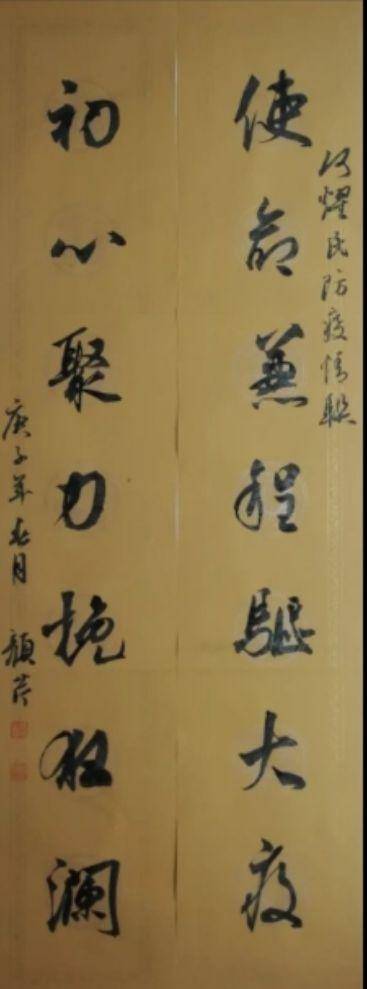 何燿民防疫情联
使命兼程驱大疫
初心聚力挽狂澜
庚子年春月